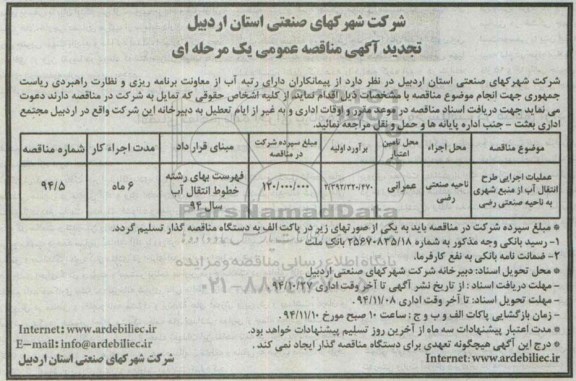 شرکت شهرکهای صنعتی استان اردبیل
تجدید آگهی مناقصه عمومی یک مرحله ای
شرکت شهرکهای صنعتی استان اردبیل در نظر دارد از پیمانکاران دارای رتبه آب از معاونت برنامه ریزی و نظارت راهبردی ریاست
جمهوری جهت انجام موضوع مناقصه با مشخصات ذیل اقدام نماید. از کلیه اشخاص حقوقی که تمایل به شرکت در مناقصه دارند دعوت
می نماید جهت دریافت اسناد مناقصه در موعد مقرر و اوقات اداری و به غیر از ایام تعطیل به دبیرخانه این شرکت واقع در اردبیل مجتمع
اداری بعثت - جنب اداره پایانه ها و حمل و نقل مراجعه نمائید.
موضوع مناقصه محل اجراء محل تامین اعتبار برآورد اولیه مبلغ سپرده شرکت در مناقصه مبنای قرارداد مدت اجراء کار شماره مناقصه
عملیات اجرایی طرح انتقال آب از منبع شهری به ناحیه صنعتی رضی ناحیه صنعتی رضی عمرانی ۲/۳۹۲/۲۲۰/۳۷۰ ۱۲۰/۰۰۰/۰۰۰ فهرست بهای رشته خطوط انتقال آب سال ۹۴ ۶ ماه ۹۴/۵
* مبلغ سپرده شرکت در مناقصه باید به یکی از صورتهای زیر در پاکت الف به دستگاه مناقصه گذار تسلیم گردد.
۱- رسید بانکی وجه مذکور به شماره ۲۵۶۷۰۸۳۵/۱۸ بانک ملت
۲- ضمانت نامه بانکی به نفع کارفرما.
* محل تحویل اسناد: دبیرخانه شرکت شهرکهای صنعتی اردبیل
- مهلت دریافت اسناد : از تاریخ نشر آگهی تا آخر وقت اداری ۹۴/۱۰/۲۷
- مهلت تحویل اسناد: تا آخر وقت اداری ۹۴/۱۱/۰۸
- زمان بازگشایی پاکات الف و ب و ج : ساعت ۱۰ صبح مورخ ۹۴/۱۱/۱۰
* مدت اعتبار پیشنهادات سه ماه از آخرین روز تسلیم پیشنهادات خواهد بود.
* درج این آگهی هیچگونه تعهدی برای دستگاه مناقصه گذار ایجاد نمی کند .
Internet: www.ardebiliec.ir
Internet: www.ardebiliec.ir
E-mail: info@ardebiliec.ir
شرکت شهرکهای صنعتی استان اردبیل
ParsNamadData
پایگاه اطلاع رسانی مناقصه و مزایده